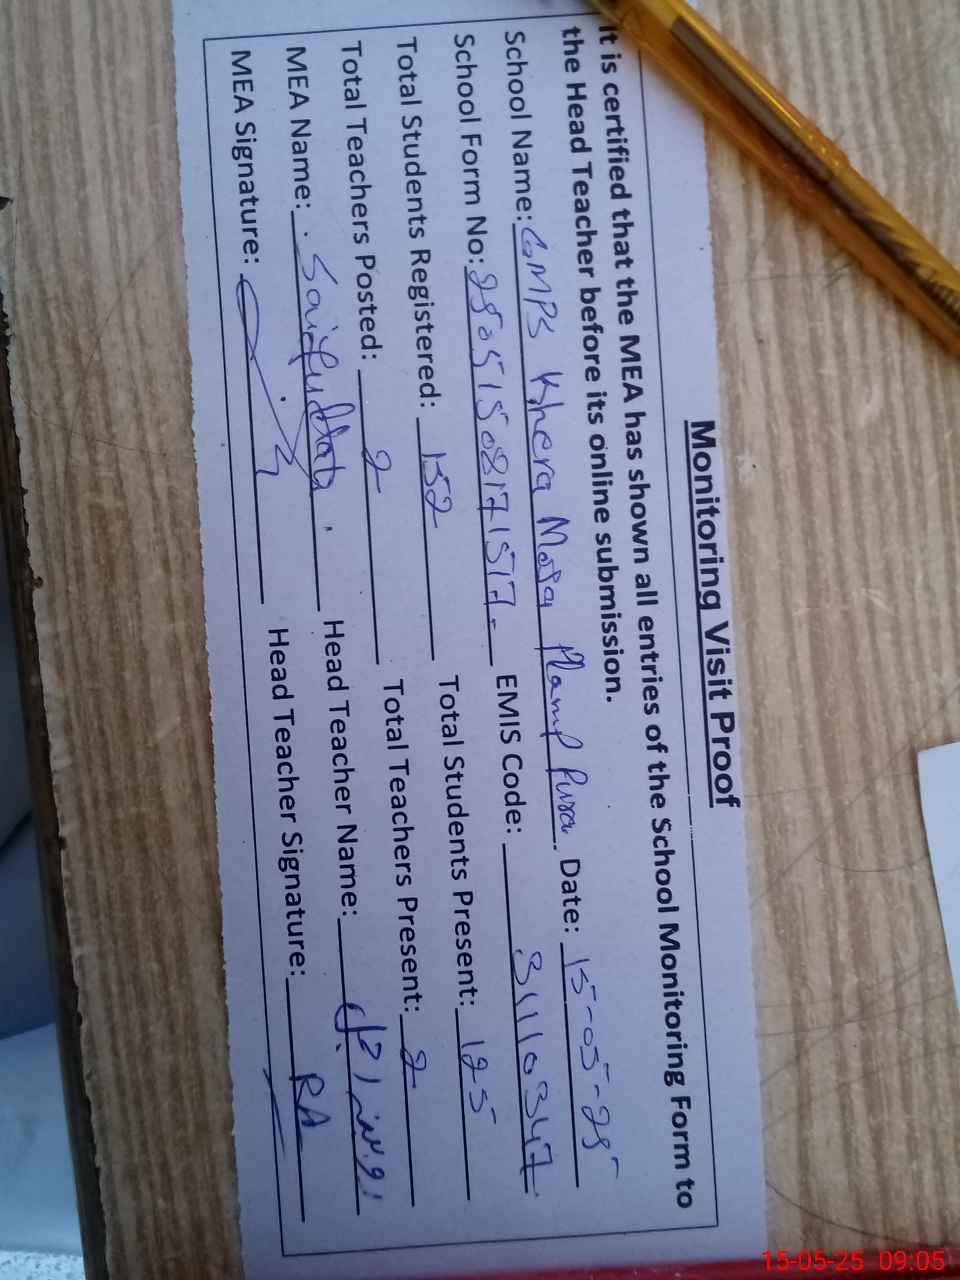 Monitoring Visit Proof
It is certified that the MEA has shown all entries of the School Monitoring Form to
the Head Teacher before its online submission.
School Name: GMPS Khera Date: 15-05-25
School Form No: EMIS Code: 31110347
Total Students Registered: 152 Total Students Present: 125
Total Teachers Posted: 2 Total Teachers Present: 2
MEA Name: Head Teacher Name:
MEA Signature: Head Teacher Signature: RA
15-05-25 09:05